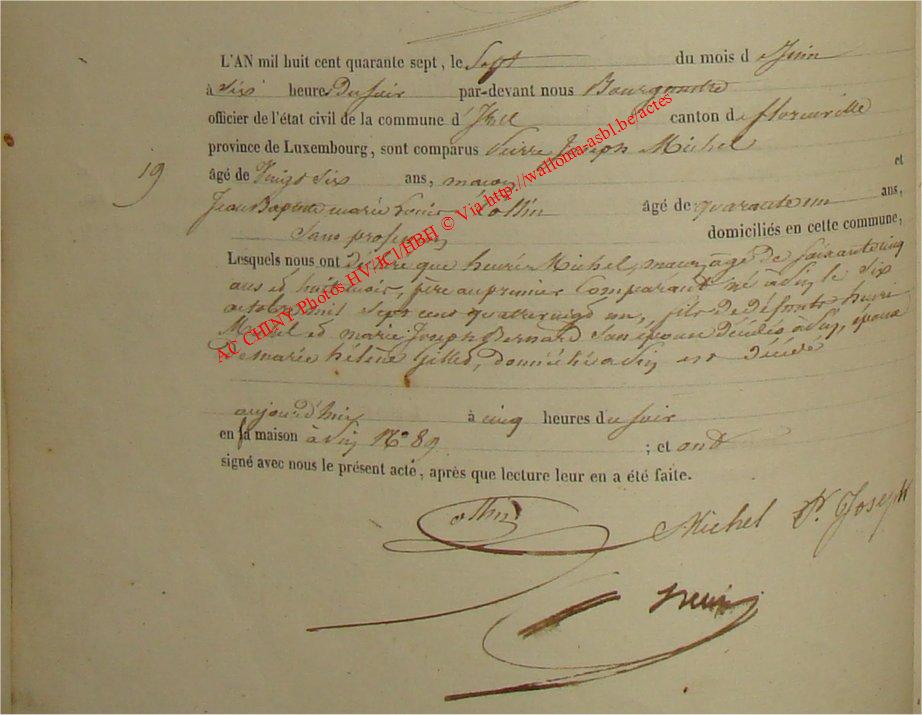 L'AN mil huit cent quarante sept, le Sept du mois de Juin
à Six heures Du soir par-devant nous Bourgmestre
officier de l'état civil de la commune d' canton de florenville
province de Luxembourg, sont comparus Pierre Joseph Michel
19
âgé de Vingt Six ans, maçon et
Jean Baptiste marie Louis âgé de quarante un ans,
Sans profession domiciliés en cette commune,
Lesquels nous ont déclaré que henri Michel, maçon, âgé de Soixante cinq
ans et huit mois, père au premier Comparant né à le Six
octobre mil Sept cent quatre vingt un, fils De Défunts henri
Michel et marie Joseph Bernard Son épouse Décédés à , époux
De marie hélène Gilles, domicilié à est Décédé
aujourd'hui à cinq heures du soir
en sa maison à N° 89 ; et ont
signé avec nous le présent acte, après que lecture leur en a été faite.
Michel P. Joseph
AC CHINY Photos HV/JCJ/HBH © Via http://walloma-asbl.be/actes